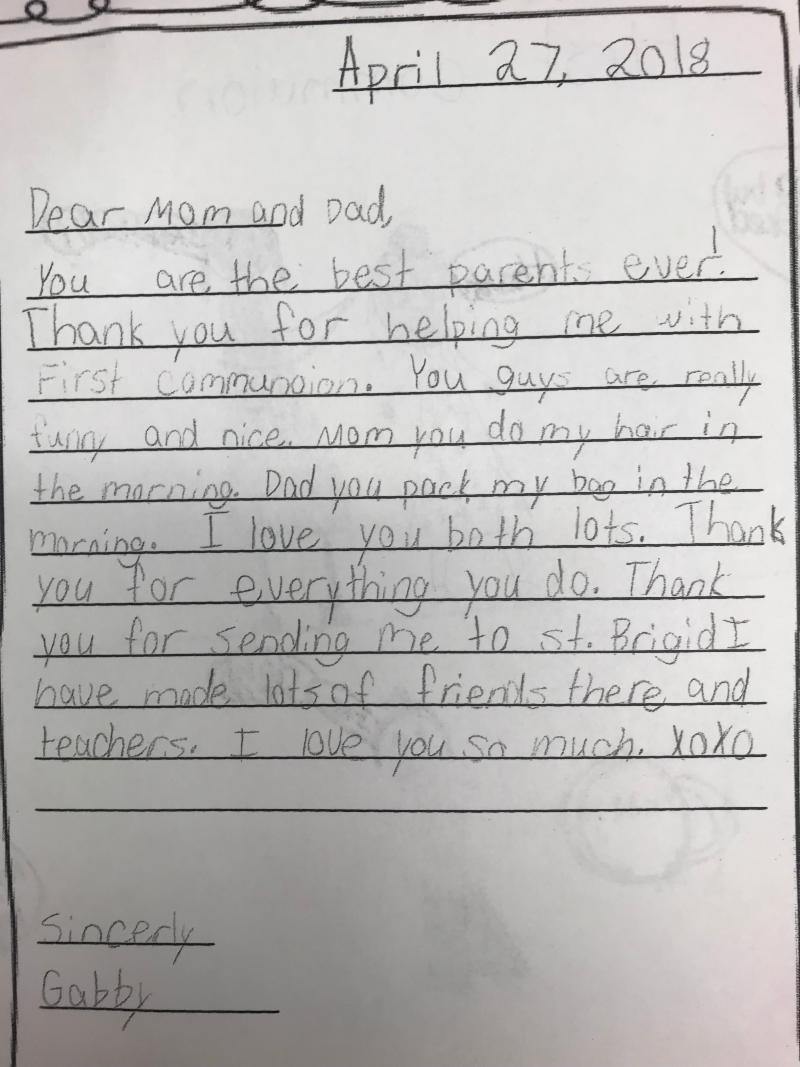 April 27, 2018
Dear Mom and Dad,
You are the best parents ever!
Thank you for helping me with
First communoion. You guys are really
funny and nice. Mom you do my hair in
the morning. Dad you pack my bag in the
morning. I love you both lots. Thank
you for everything you do. Thank
you for sending me to st. Brigid I
have made lots of friends there and
teachers. I love you so much. XoXo
Sincerly
Gabby